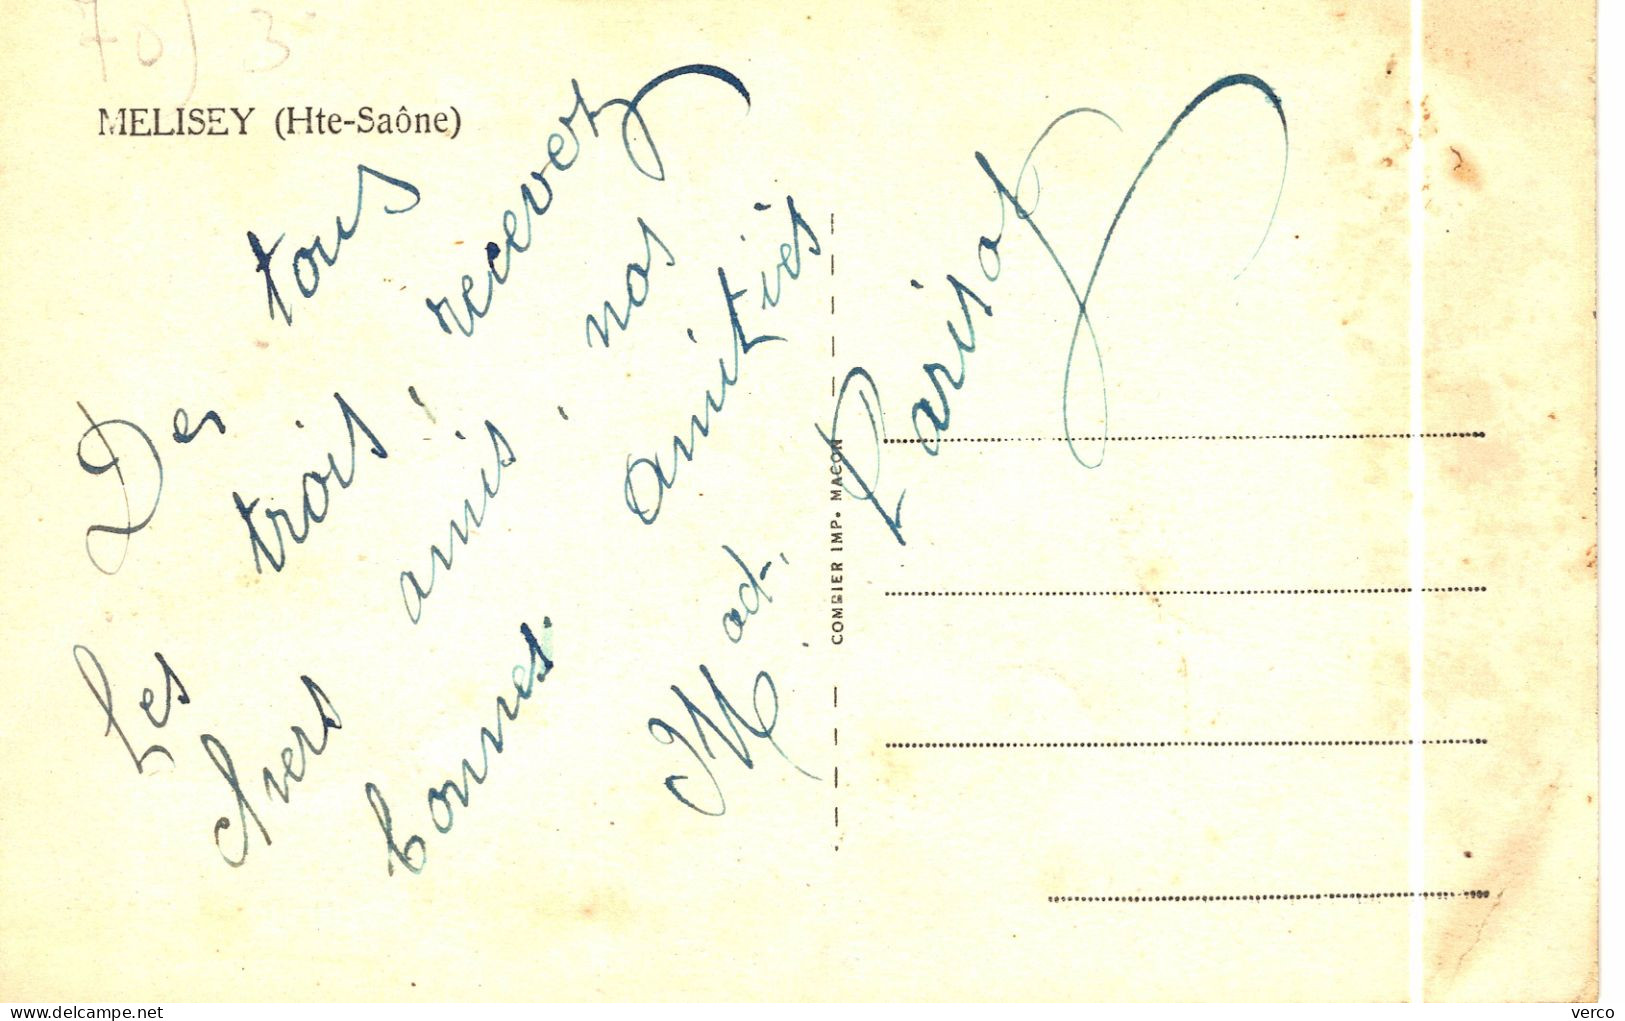 70) 3
MELISEY (Hte-Saône)
De tous
Les trois, recevez
chers amis, nos
bonnes amitiés
Mad. Parisot
COMBIER IMP. MACON
delcampe.net
verco